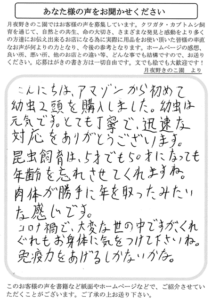 あなた様の声をお聞かせください
月夜野きのこ園ではお客様の声を募集しています。クワガタ・カブトムシ飼
育を通じて、自然との共生、命の大切さ、さまざまな発見と感動をより多く
の方達にお伝え出来るお店になる為に実際に用品をお使い頂いた皆様の率直
なお声が何よりの力となり、今後の参考となります。ホームページの感想、
良い所、悪い所、他のお店との違い等、何でも結構ですので、お送りくださ
い。応募はがきの書き方は一切自由です。文でも絵でも大歓迎です！
月夜野きのこ園 より
こんにちは、アマゾンから初めて
幼虫2頭を購入しました。幼虫は
元気です。とても丁寧で、迅速な
対応をありがとうございます。
昆虫飼育は、5才でも50才になっても
年齢を忘れさせてくれますね。
肉体が勝手に年を取ったみたい
な感じです。
コロナ禍で、大変な世の中ですがくれ
ぐれもお身体に気をつけて下さいね。
免疫力をあげるしかないかな。
このお客様の声を書籍など紙面やホームページなどで、ご紹介させてい
ただくことがございます。ご了承の上お送り下さい。